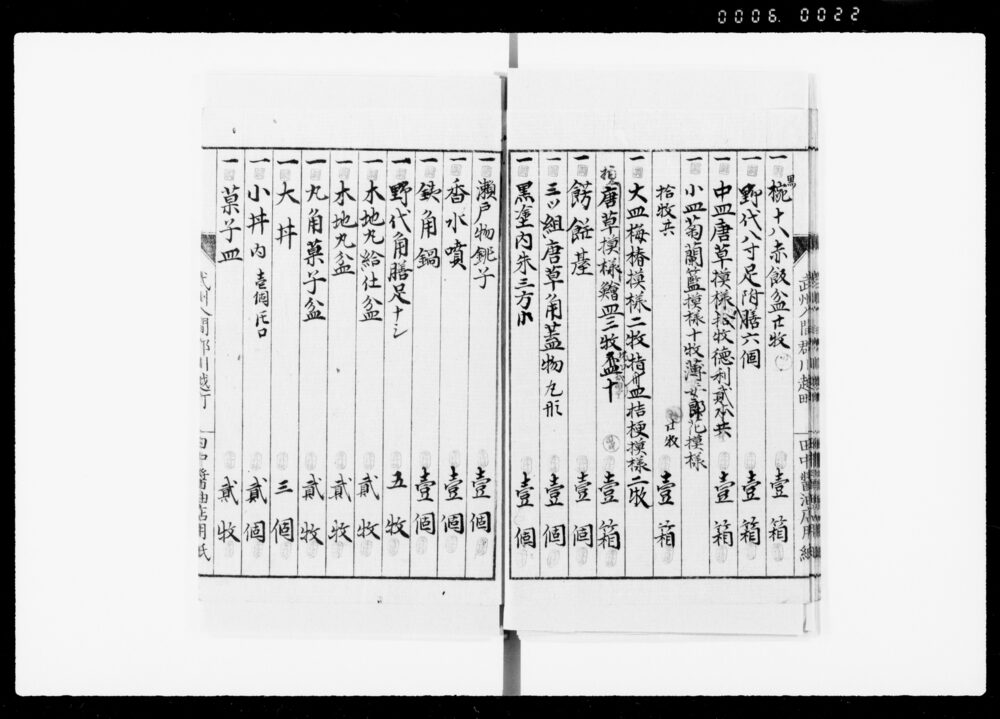 0006. 0022
武州入間郡川越町
田中醬油店用紙
一 黒椀十八赤飯盆廿牧 壹箱
一 野代八寸足附膳六個 壹箱
一 中皿唐草模様拾牧徳利貳本共 壹箱
一 小皿菊蘭籃模様十牧薄女郎花模様
拾牧共 廿牧 壹箱
一 大皿梅椿模様二牧指身皿桔梗模様二牧
唐草模様鱠皿三牧盃十 壹箱
一 餝餅䑓 壹個
一 三ツ組唐草角蓋物丸形 壹個
一 黒塗内朱三方小 壹個
一 瀬戸物銚子 壹個
一 香水噴 壹個
一 鉄角鍋 壹個
一 野代角膳足ナシ 五牧
一 木地丸給仕盆 貳牧
一 木地丸盆 貳牧
一 丸角菓子盆 貳牧
一 大丼 三個
一 小丼内壹個 貳個
一 菓子皿 貳牧
武州入間郡川越町
田中醬油店用紙